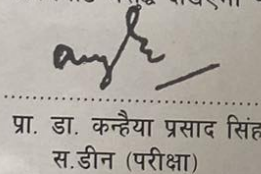 प्रा. डा. कन्हैया प्रसाद सिंह
स.डीन (परीक्षा)